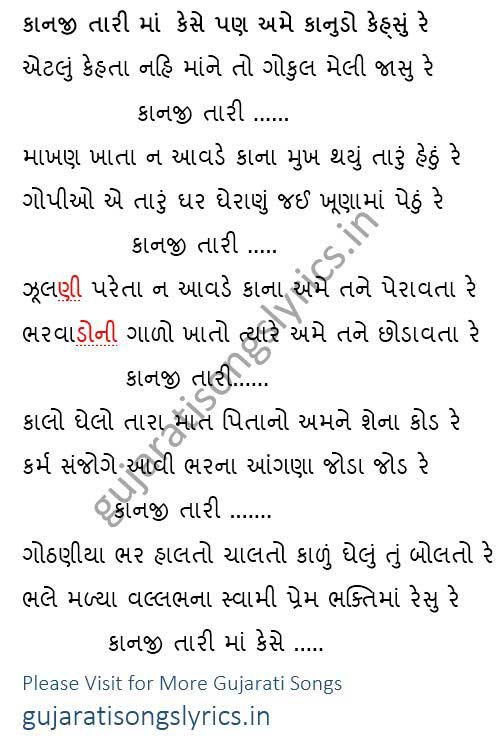 કાનજી તારી માં કેસે પણ અમે કાનુડો કેહ્સું રે
એટલું કેહતા નહિ માંને તો ગોકુલ મેલી જાસુ રે
કાનજી તારી ......
માખણ ખાતા ન આવડે કાના મુખ થયું તારું હેઠું રે
ગોપીઓ એ તારું ઘર ઘેરાણું જઈ ખૂણામાં પેઠું રે
કાનજી તારી .....
ઝૂલણી પરેતા ન આવડે કાના અમે તને પેરાવતા રે
ભરવાડોની ગાળો ખાતો ત્યારે અમે તને છોડાવતા રે
કાનજી તારી......
કાલો ઘેલો તારા માત પિતાનો અમને શેના કોડ રે
કર્મ સંજોગે આવી ભરના આંગણા જોડા જોડ રે
કાનજી તારી .......
ગોઠણીયા ભર હાલતો ચાલતો કાળું ઘેલું તું બોલતો રે
ભલે મળ્યા વલ્લભના સ્વામી પ્રેમ ભક્તિમાં રેસુ રે
કાનજી તારી માં કેસે .....
Please Visit for More Gujarati Songs
gujaratisongslyrics.in
gujaratisongslyrics.in